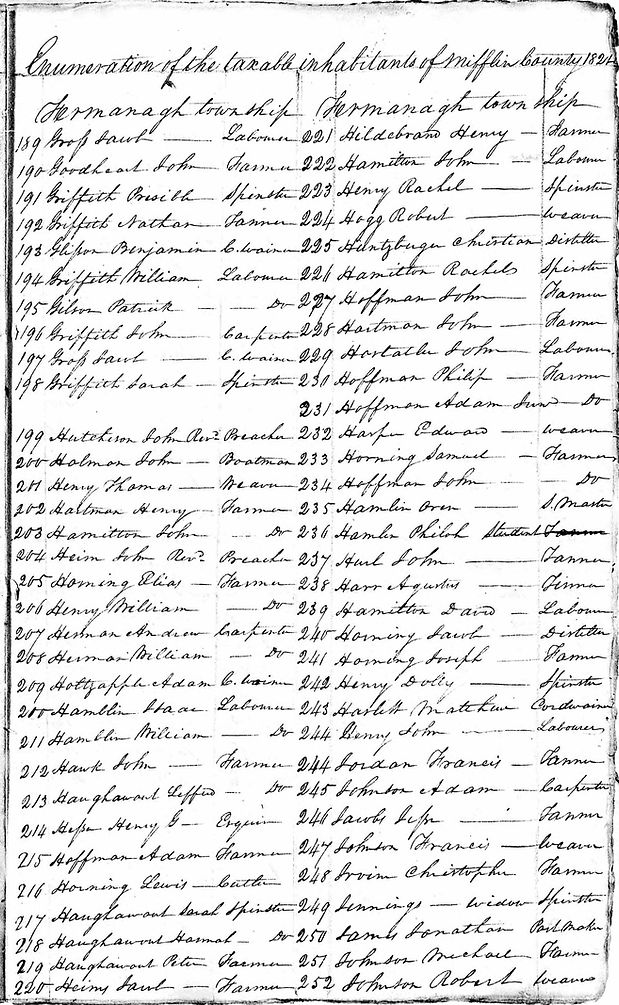 Enumeration of the taxable inhabitants of Mifflin County 1821
Fermanagh township
189 Gross Jacob — Labourer
190 Goodheart John — Farmer
191 Griffith Presilla Spinster
192 Griffith Nathan Tanner
193 Glisson Benjamin C. wainer
194 Griffith William Labourer
195 Gilson Patrick — — Do
196 Griffith John — Carpenter
197 Gross Jacob — C. wainer
198 Griffith Sarah — Spinster
199 Hutcheson John Revd. Preacher
200 Holman John — Boatman
201 Henry Thomas — Weaver
202 Hartman Henry — Farmer
203 Hamilton John — Do
204 Heim John Revd. Preacher
205 Horning Elias — Farmer
206 Henry William — Do
207 Herman Andrew Carpenter
208 Herman William — Do
209 Holtzapple Adam C. wainer
200 Hamblin Isaac Labourer
211 Hamblin William — Do
212 Hawk John — Farmer
213 Haughawout Leffred — Do
214 Hesser Henry G — Esquire
215 Hoffman Adam Farmer
216 Horning Lewis — Cutler
217 Haughawout Sarah Spinster
218 Haughawout Hannah — Do
219 Haughawout Peter Farmer
220 Heims Jacob — Farmer
Fermanagh township
221 Hildebrand Henry — Farmer
222 Hamilton John — Labourer
223 Henry Rachel — Spinster
224 Hogg Robert — weaver
225 Huntzburger Christian Distiller
226 Hamilton Rachels Spinster
227 Hoffman John — Farmer
228 Hartman John — Farmer
229 Hostatler John — Labourer
230 Hoffman Philip — Farmer
231 Hoffman Adam Junr — Do
232 Harper Edward — weaver
233 Horning Samuel — Farmer
234 Hoffman John — Do
235 Hamlin Oren — S. Master
236 Hamlin Philoh Student Farmer
237 Hurl John — Tanner
238 Harr Agustus —
239 Hamilton David — Labourer
240 Horning Jacob — Distiller
241 Horning Joseph — Farmer
242 Henry Dolly — Spinster
243 Harlett Matthew Cordwainer
244 Henry John — Labourer
244 Jordan Francis — Tanner
245 Johnson Adam — Carpenter
246 Jacobs Jesse — Tanner
247 Johnson Francis — Weaver
248 Irvin Christopher Farmer
249 Jennings — widow Spinster
250 James Jonathan
251 Johnson Michael Farmer
252 Johnson Robert weaver